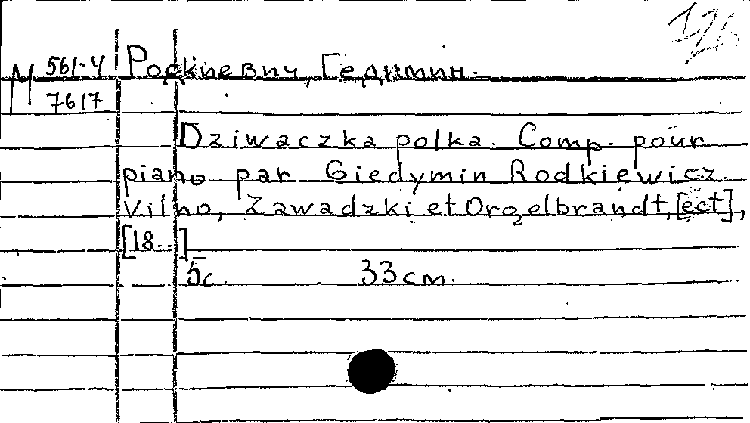 126
М 561-4
7617
Родкиевич, Гедимин.
Dziwaczka polka. Comp. pour
piano par Giedymin Rodkiewicz
Vilno, Zawadzki et Orgelbrandt, [ect],
[18..]
5c. 33 cm.